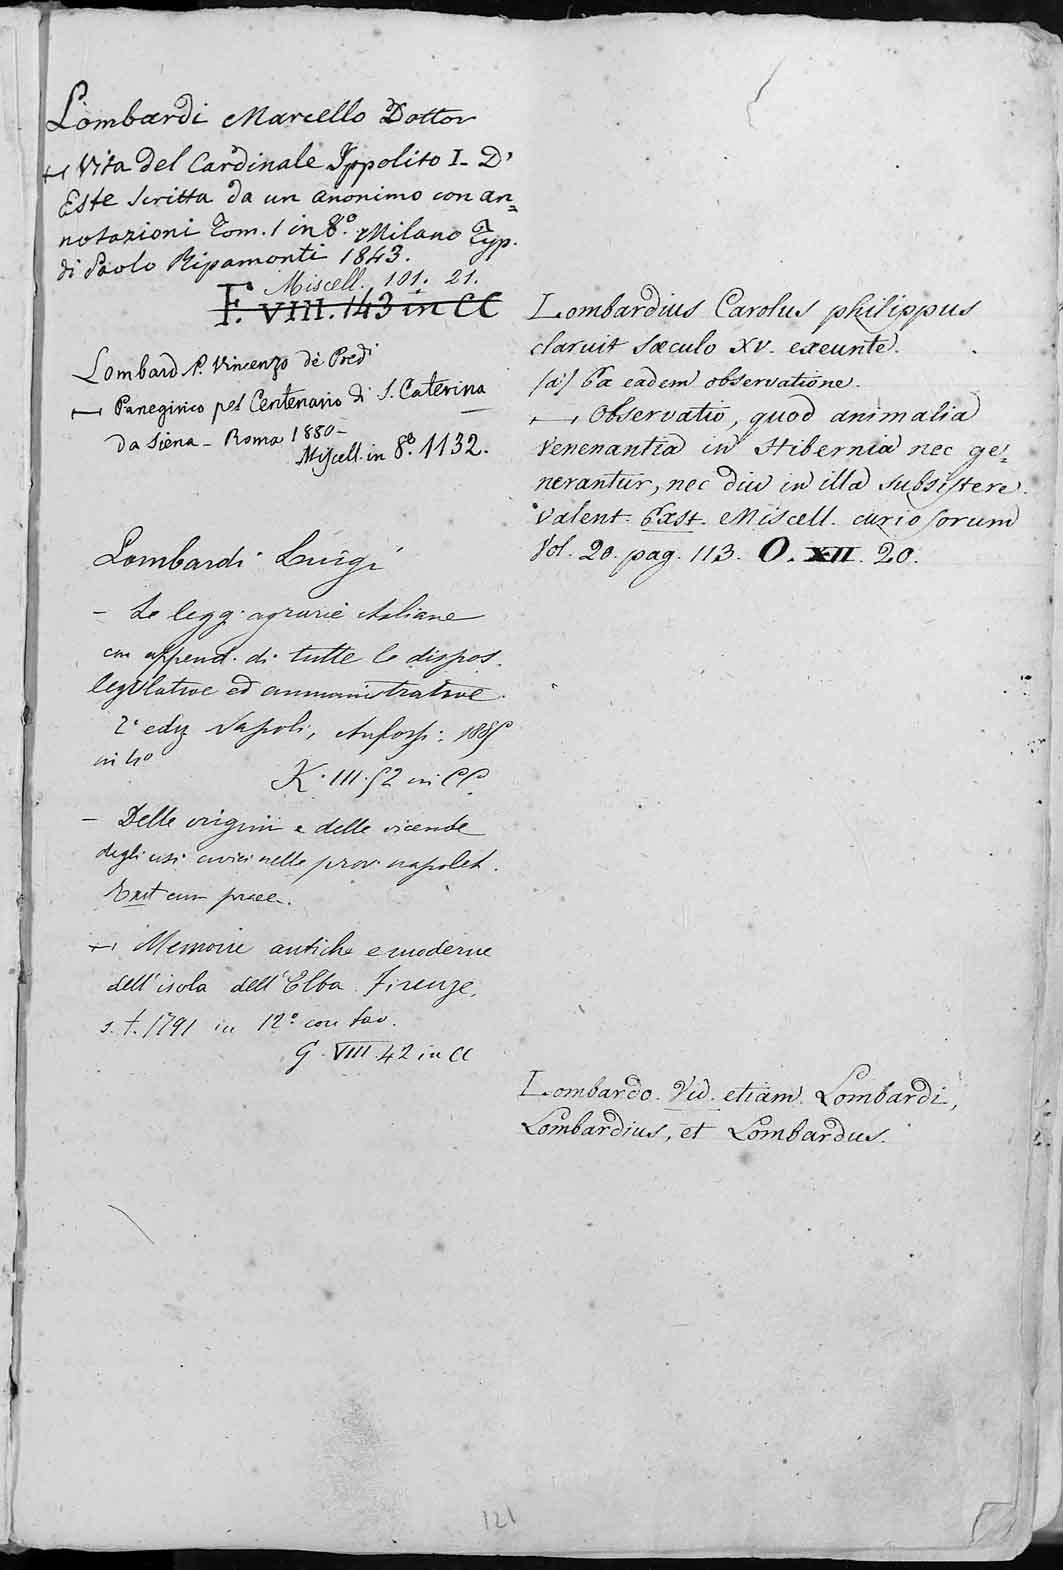 Lombardi Marcello Dottor
⊢ Vita del Cardinale Ippolito I. D'
Este scritta da un anonimo con an=
notazioni Tom. 1 in 8.° Milano Typ.
di Paolo Ripamonti 1843.
Miscell. 101. 21.
F. VIII. 143 in CC
Lombard. P. Vincenzo de' Pred.
⊢ Panegirico pel Centenario di S. Caterina
da Siena - Roma 1880 -
Miscell. in 8.° 1132.
Lombardi Luigi
- Le legg. agrarie italiane
con append. di tutte le dispos.
legislative ed amministrative
2ª ediz Napoli,
in 4°
K. III. 52 in CC.
- Delle origini e delle vicende
degli usi civici nelle prov. napolet.
Exst cum praec.
⊢ Memorie antiche e moderne
dell'isola dell'Elba. Firenze,
s. t. 1791 in 12.° con tav.
G. VIII. 42 in CC
Lombardius Carolus philippus
claruit sæculo XV. exeunte.
(a) Ex eadem observatione.
⊢ Observatio, quod animalia
venenantia in Hibernia nec ge=
nerantur, nec diu in illa subsistere
valent. Exst. Miscell. curiosorum
Vol. 20. pag. 113. O. XII. 20.
Lombardo. Vid. etiam Lombardi,
Lombardius, et Lombardus.
121